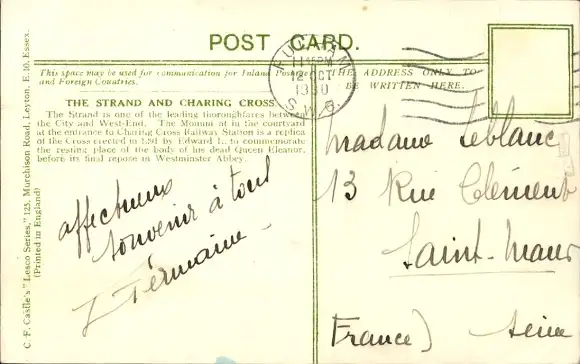 POST CARD.
FULHAM
11 45 PM
12 OCT
1930
S.W.6.
This space may be used for communication for Inland Postage
and Foreign Countries.
THE ADDRESS ONLY TO
BE WRITTEN HERE.
THE STRAND AND CHARING CROSS
The Strand is one of the leading thoroughfares between
the City and West-End. The Monument in the courtyard
at the entrance to Charing Cross Railway Station is a replica
of the Cross erected in 1291 by Edward I., to commemorate
the resting place of the body of his dead Queen Eleanor,
before its final repose in Westminster Abbey.
affectueux
souvenir à tous
Germaine
Madame Leblanc
13 Rue Clément
Saint-Maur
France) Seine
C. F. Castle's "Lesco Series," 125, Murchison Road, Leyton, E.10, Essex.
(Printed in England)